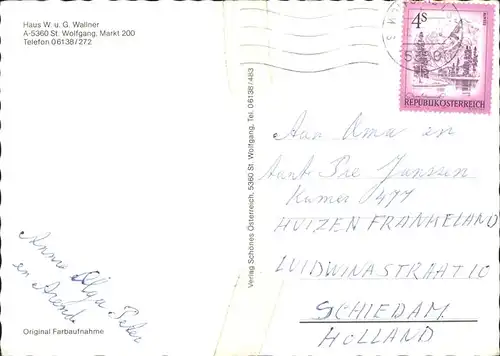 Haus W. u. G. Wallner
A-5360 St. Wolfgang, Markt 200
Telefon 06138/272
4S
REPUBLIK ÖSTERREICH
Verlag Schönes Österreich, 5360 St. Wolfgang, Tel. 06138/483
Aan Oma en
Tante Pie Janssen
Kamer 477
HUIZEN FRANKELAND
LUIDWINASTRAAT IC
SCHIEDAM
HOLLAND
Anne Olga Peter
en Arend
Original Farbaufnahme